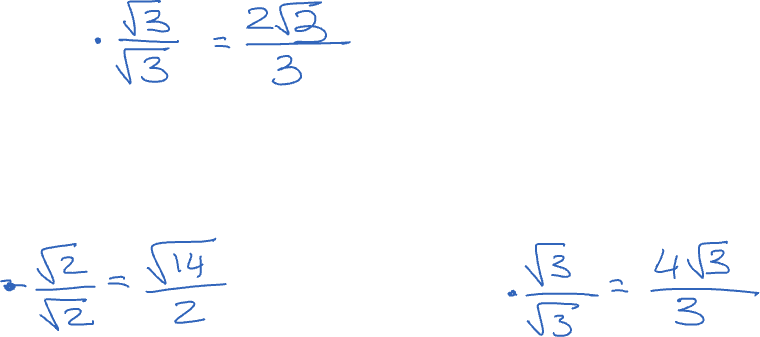 · √3/√3 = 2√3/3
· √2/√2 = √14/2
· √3/√3 = 4√3/3